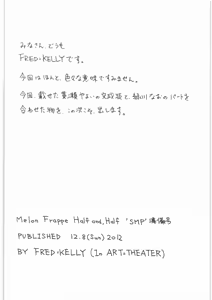 みなさん、どうも
FRED・KELLYです。
今回はほんと、色々な意味ですみません。
今回、載せた黄瀬やよいの完成版と緑川なおのパートを
合わせた物を この次に 出します。
Melon Frappe Half and Half 'SMP' 準備号
PUBLISHED 12.8 (Sun) 2012
BY FRED・KELLY (In ART・THEATER)